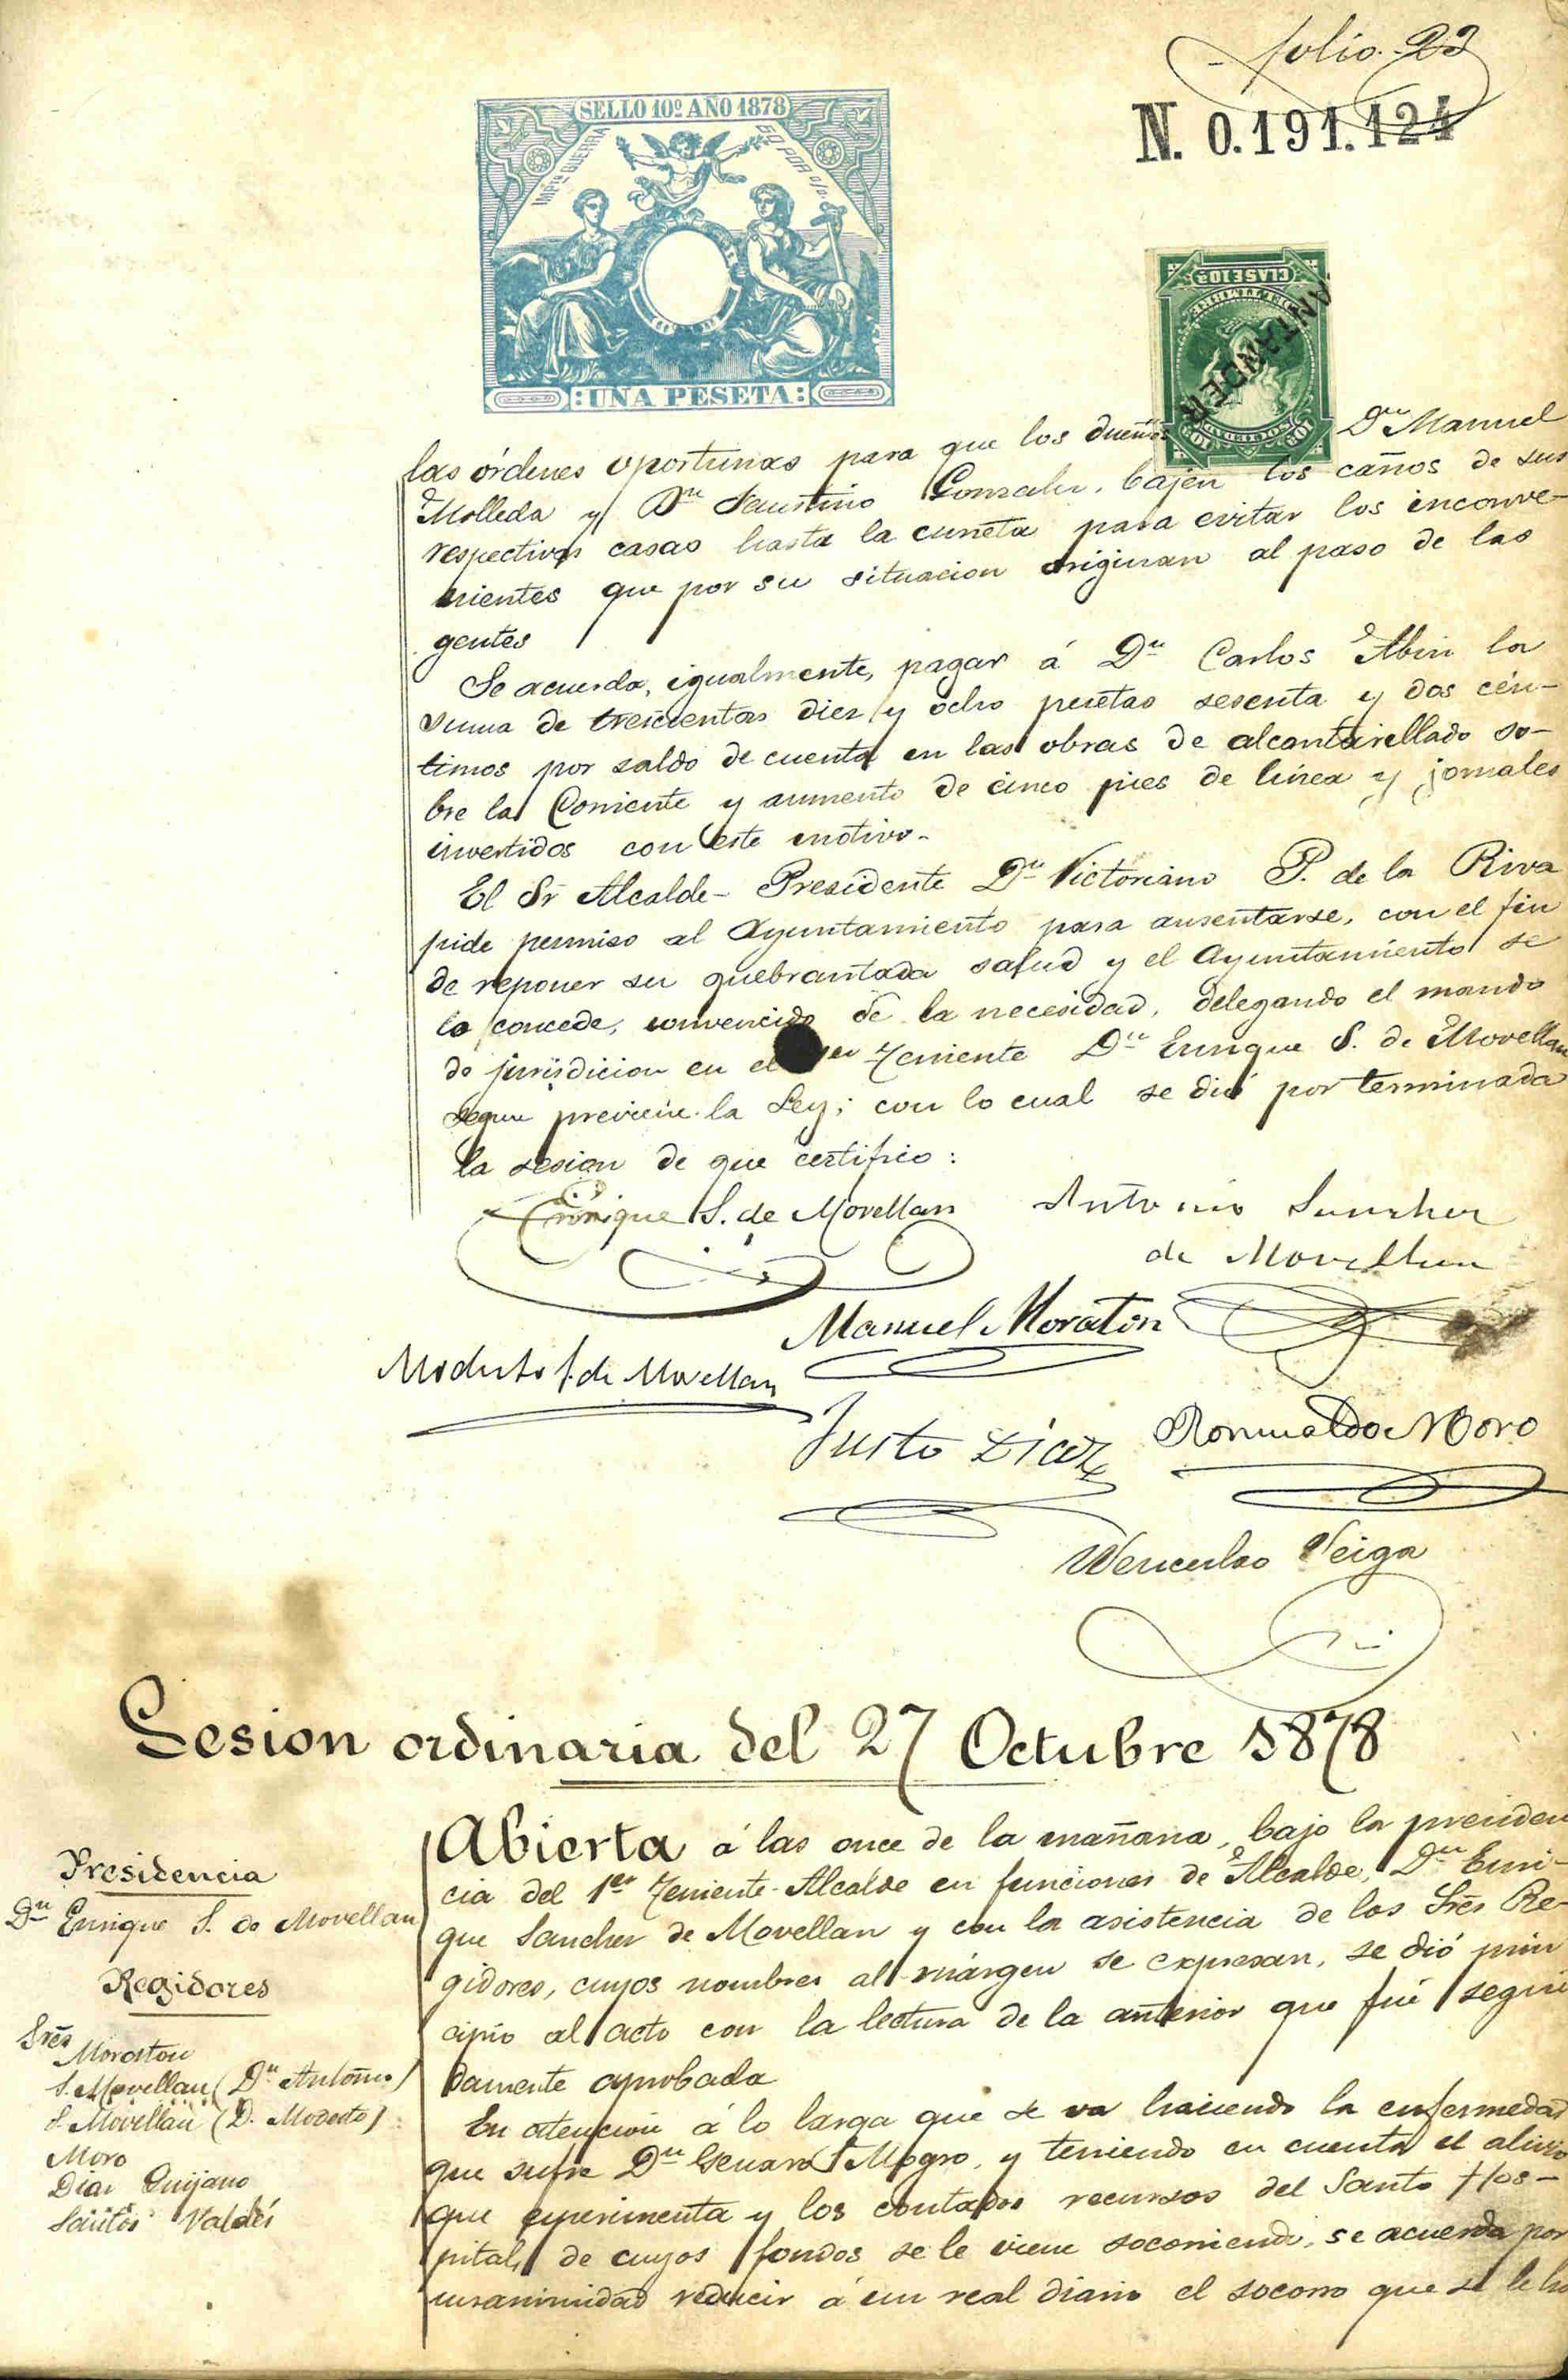 folio. 23
N. 0.191.124
SELLO 10º AÑO 1878
IMPtº GUERRA
50 POR 0/0
UNA PESETA
CLASE 10ª
SOCIEDAD
ANTANDER
las órdenes oportunas para que los dueños Dn Manuel
Molleda y Dn Faustino Gonzalez, bajen los caños de sus
respectivas casas hasta la cuneta para evitar los inconve-
nientes que por su situacion originan al paso de las
gentes
Se acuerda, igualmente, pagar á Dn Carlos Abin la
suma de trescientas diez y ocho pesetas sesenta y dos cén-
timos por saldo de cuenta en las obras de alcantarillado so-
bre la Corriente y aumento de cinco pies de línea y jornales
invertidos con este motivo-
El Sr Alcalde- Presidente Dn Victoriano P. de la Riva
pide permiso al Ayuntamiento para ausentarse, con el fin
de reponer su quebrantada salud y el Ayuntamiento se
lo concede, convencido de la necesidad, delegando el mando
de jurisdicion en el 1er Teniente Dn Enrique S. de Movellan
segun previene la Ley; con lo cual se dió por terminada
la sesion de que certifico:
Enrique S. de Movellan
Antonio Sanchez
de Movellan
Manuel Moraton
Modesto S. de Movellan
Justo Diaz
Romualdo Moro
Wenceslao Veiga
Sesion ordinaria del 27 Octubre 1878
Presidencia
Dn Enrique S. de Movellan
Regidores
Sres
Moraton
S. Movellan (Dn Antonio)
S. Movellan (D. Modesto)
Moro
Diaz Quijano
Santos Valdés
Abierta á las once de la mañana, bajo la presiden
cia del 1er Teniente-Alcalde en funciones de Alcalde, Dn Enri-
que Sanchez de Movellan y con la asistencia de los Sres Re-
gidores, cuyos nombres al márgen se expresan, se dió prin
cipio al acto con la lectura de la anterior que fué segui
damente aprobada
En atencion á lo larga que se va haciendo la enfermedad
que sufre Dn Genaro Mogro, y teniendo en cuenta el alivio
que esperimenta y los contados recursos del Santo Hos-
pital, de cuyos fondos se le viene socorriendo, se acuerda por
unanimidad reducir á un real diario el socorro que se le ha